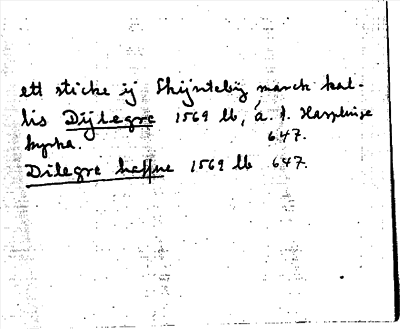 ett sticke ij Skijntebÿ marck kal-
lis Dijlegre 1569 lb, á. f. Harplinge
kyrka. 647.
Dilegre haffne 1569 lb 647.